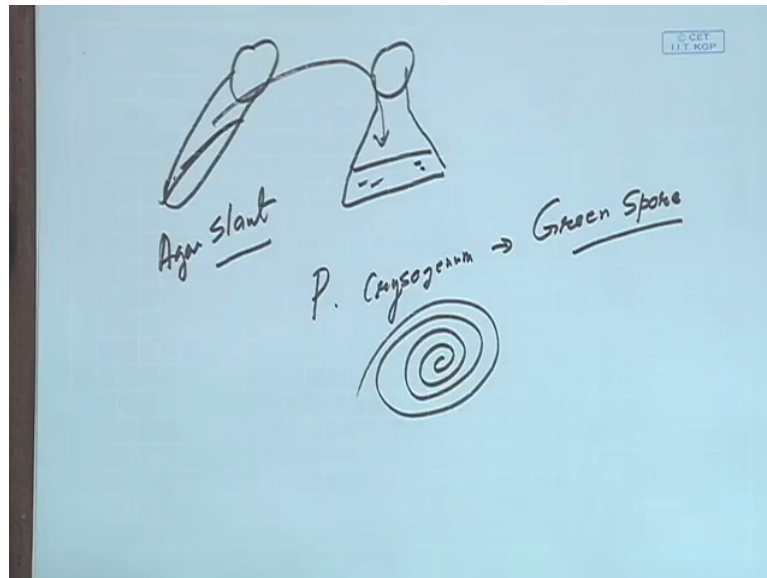 © CET
I.I.T. KGP
Agar Slant
P. Crysogenum → Green Spore